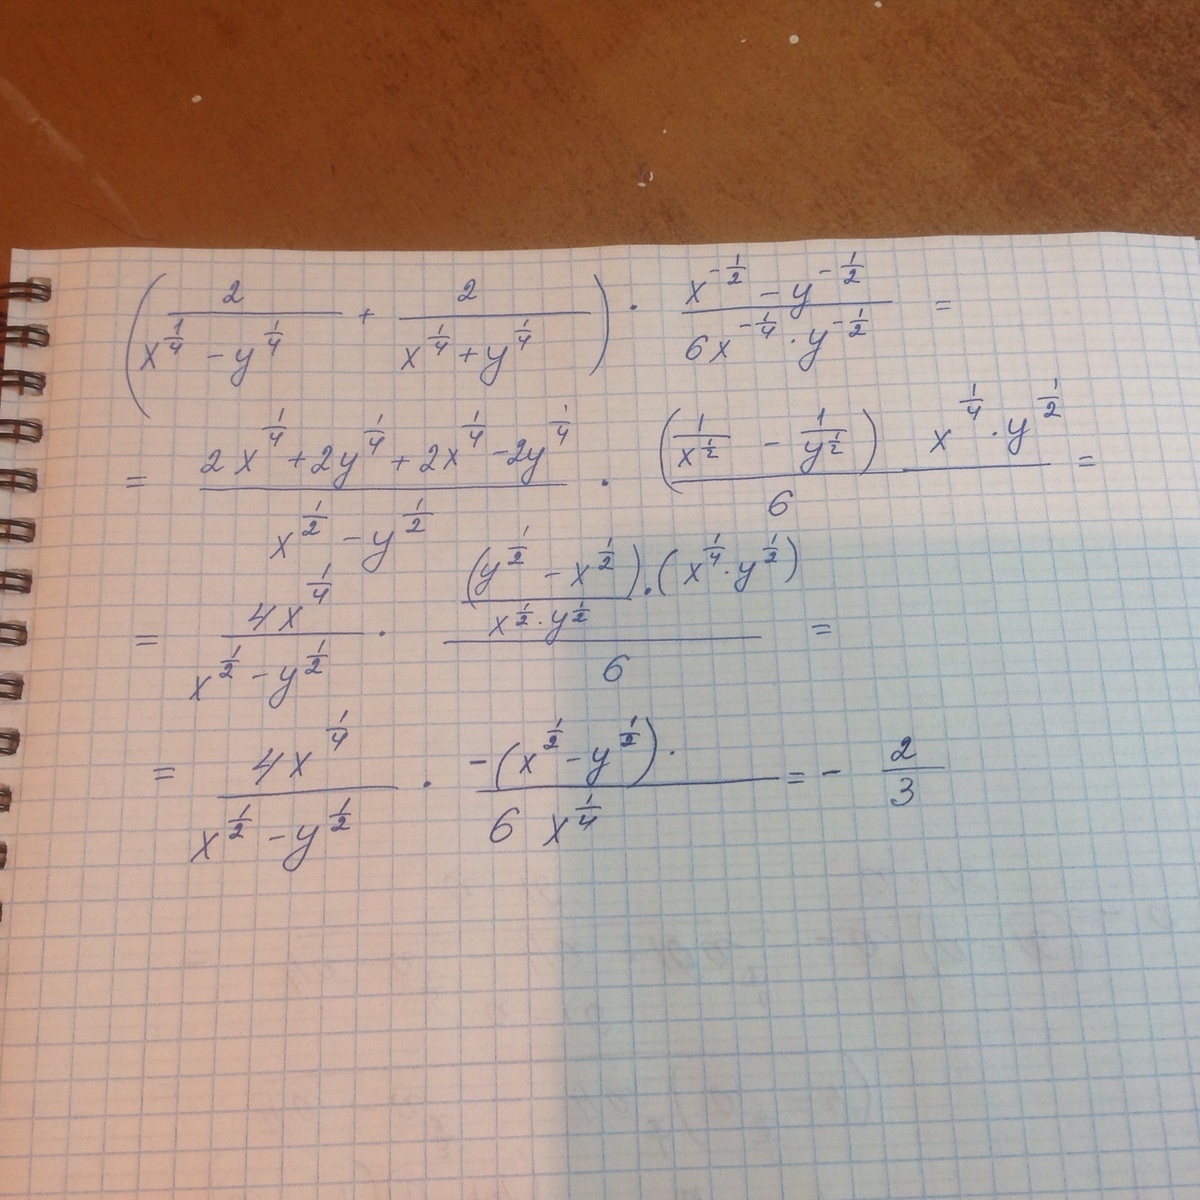 (2/(x^(1/4) - y^(1/4)) + 2/(x^(1/4) + y^(1/4))) · (x^(-1/2) - y^(-1/2))/(6x^(-1/4) · y^(-1/2)) =
= (2x^(1/4) + 2y^(1/4) + 2x^(1/4) - 2y^(1/4))/(x^(1/2) - y^(1/2)) · ((1/x^(1/2) - 1/y^(1/2)) x^(1/4) · y^(1/2))/6 =
= 4x^(1/4)/(x^(1/2) - y^(1/2)) · ((y^(1/2) - x^(1/2))/(x^(1/2) · y^(1/2)) · (x^(1/4) · y^(1/2)))/6 =
= 4x^(1/4)/(x^(1/2) - y^(1/2)) · (-(x^(1/2) - y^(1/2)) ·)/(6 x^(1/4)) = - 2/3